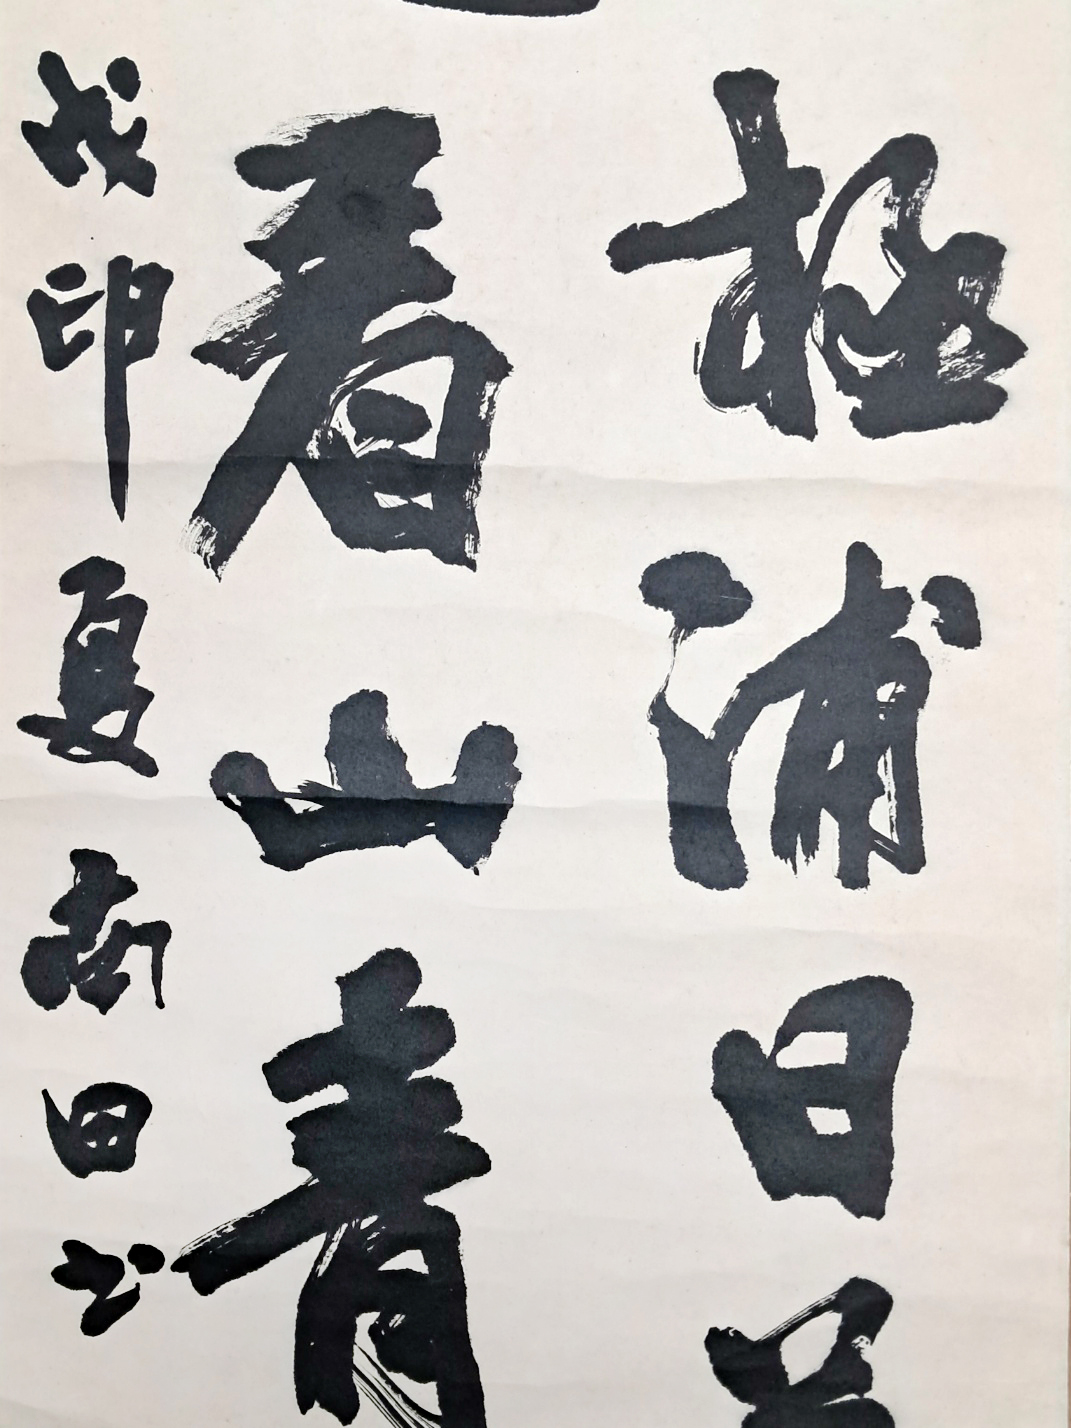 極浦日
看山青
戊印夏南田书